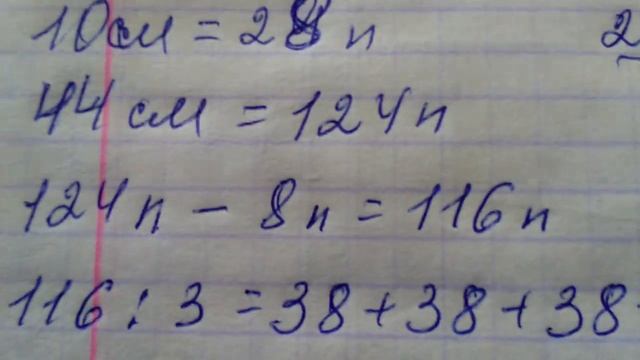 10см = 28 п 2
44 см = 124п
124п - 8п = 116п
116 : 3 = 38 + 38 + 38